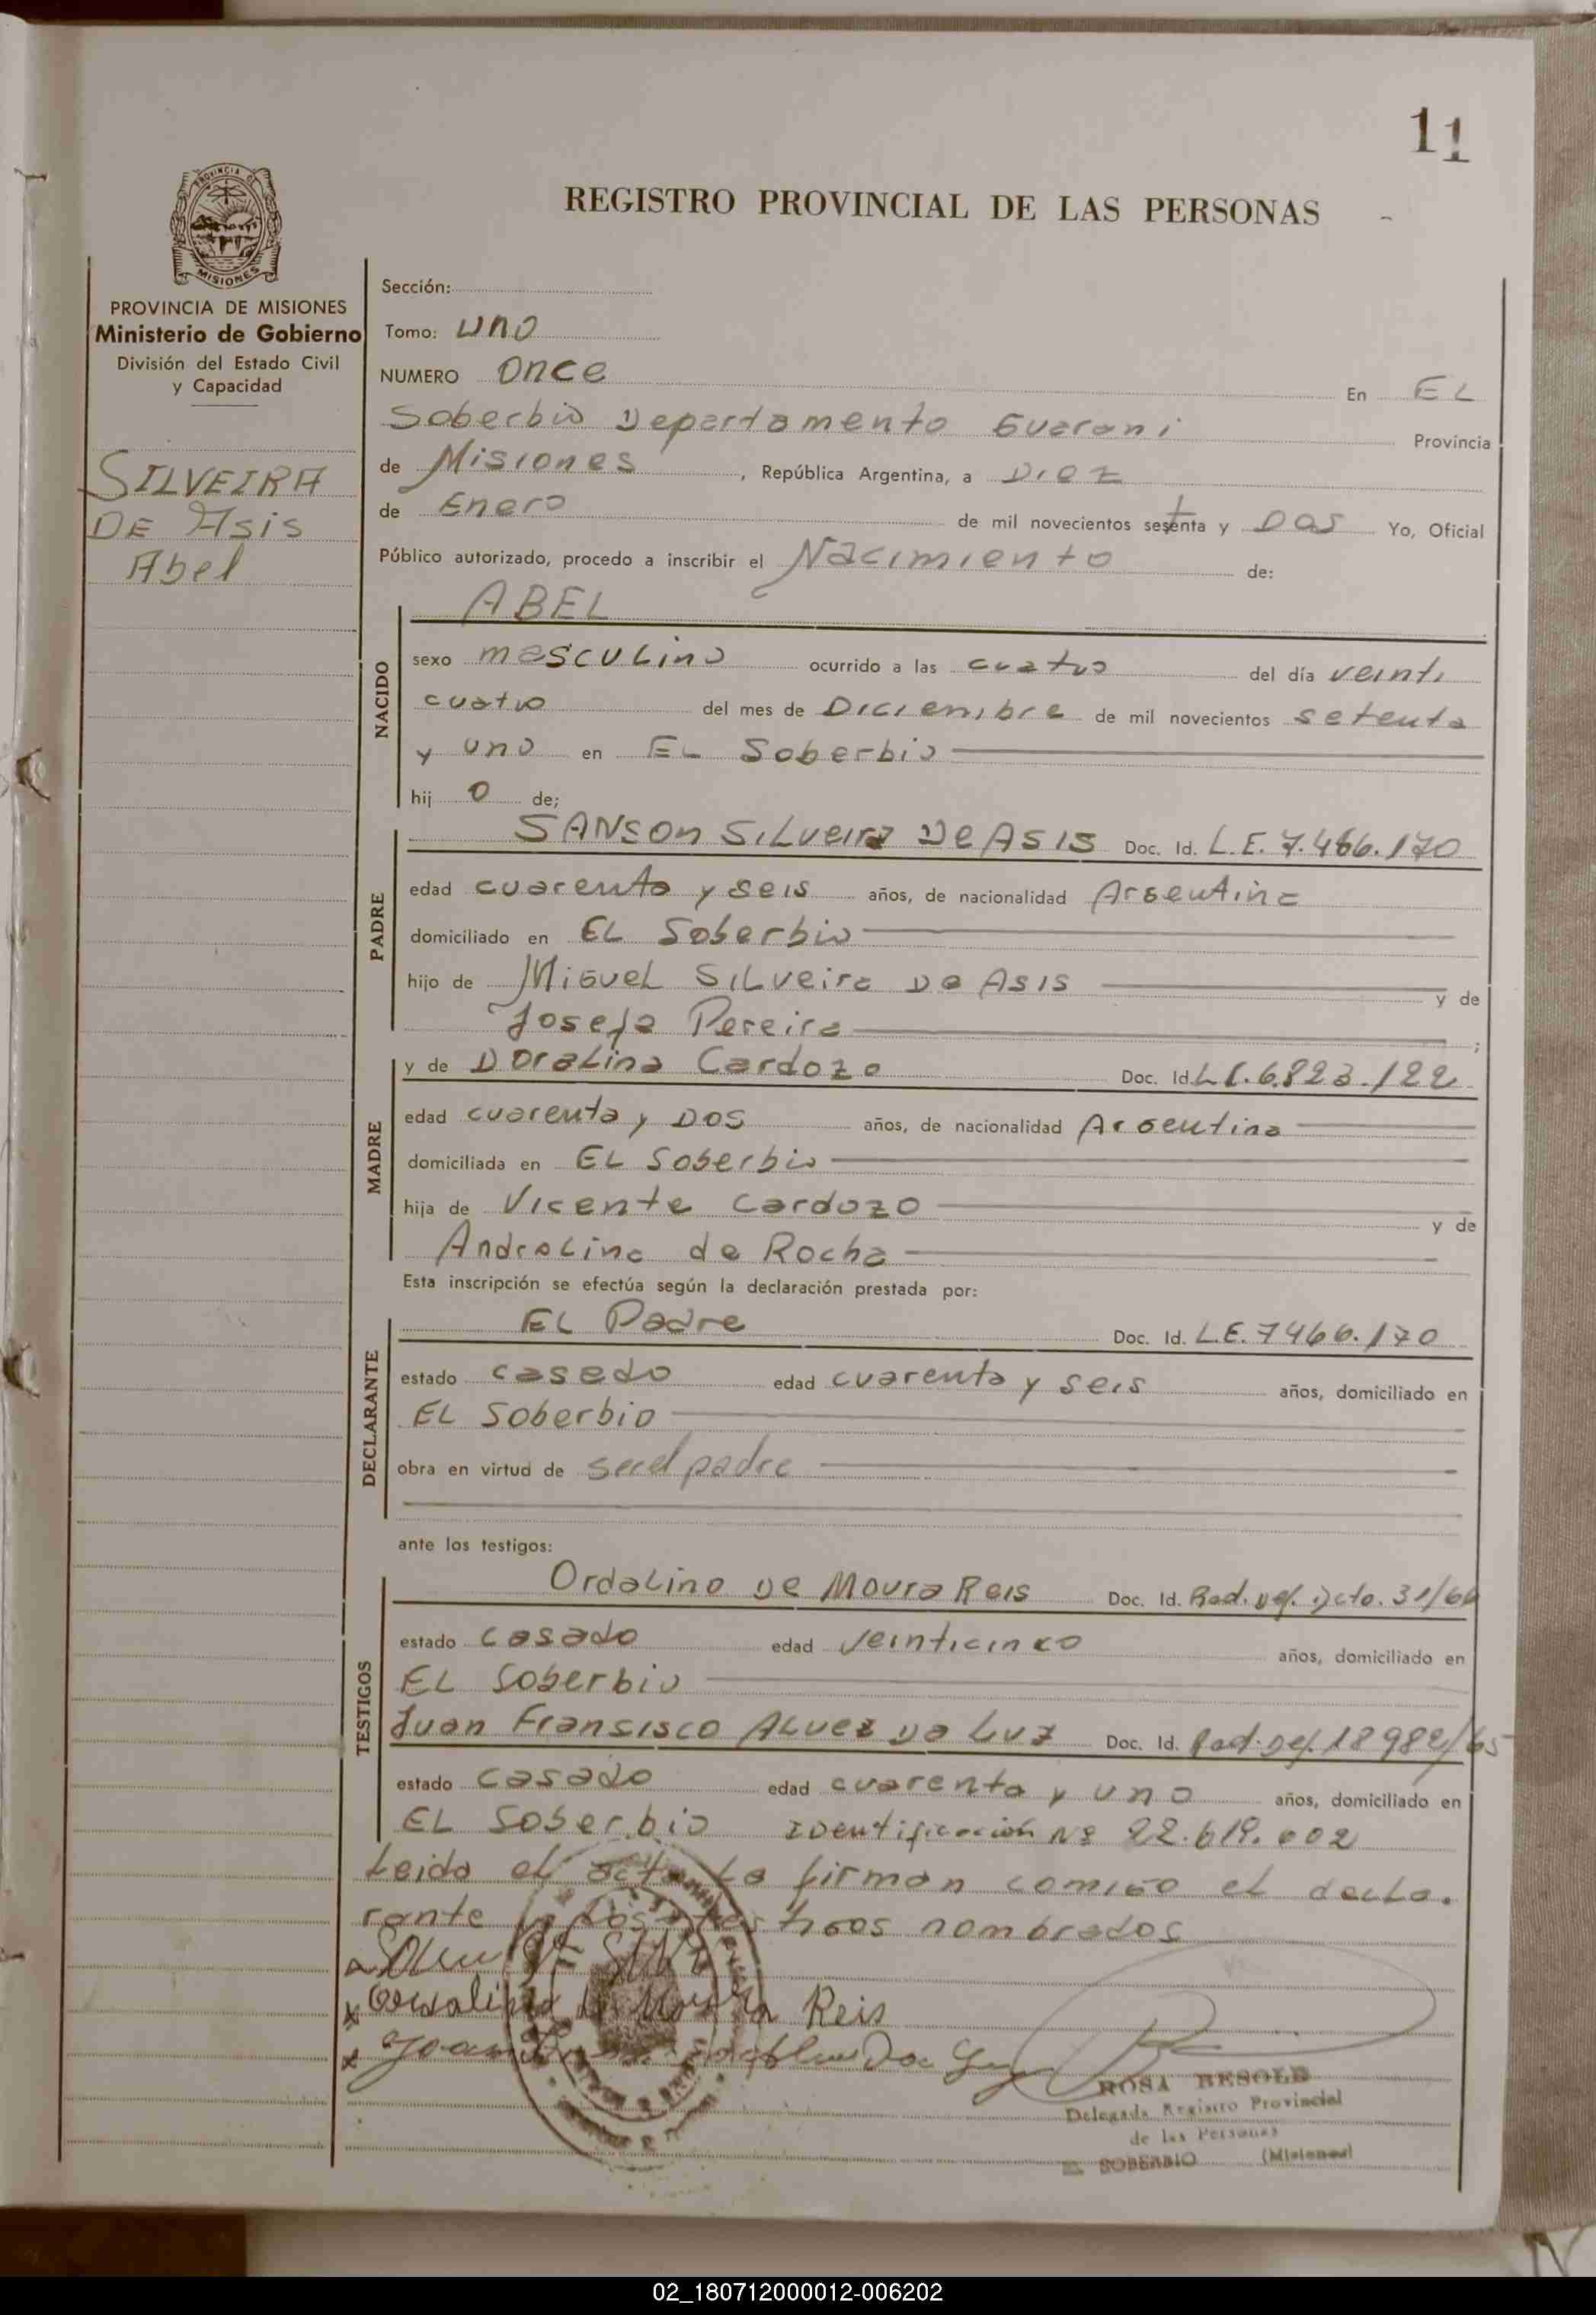 11
REGISTRO PROVINCIAL DE LAS PERSONAS
PROVINCIA DE MISIONES
PROVINCIA DE MISIONES
Ministerio de Gobierno
División del Estado Civil
y Capacidad
SILVEIRA
DE Asis
Abel
Sección:
Tomo: uno
NUMERO once En EL
Soberbio Departamento Guarani Provincia
de Misiones, República Argentina, a Diez
de Enero de mil novecientos setenta y DOS Yo, Oficial
Público autorizado, procedo a inscribir el Nacimiento de:
NACIDO
ABEL
sexo masculino ocurrido a las cuatro del día veinti
cuatro del mes de Diciembre de mil novecientos setenta
y uno en EL Soberbio
hij o de;
PADRE
SANSON SILveira De ASIS Doc. Id. L.E. 7.466.170
edad cuarenta y seis años, de nacionalidad Argentina
domiciliado en EL Soberbio
hijo de Miguel SILveira De ASIS y de
Josefa Pereira ;
MADRE
y de Doralina Cardozo Doc. Id. L.C. 6.823.122
edad cuarenta y DOS años, de nacionalidad Argentina
domiciliada en EL Soberbio
hija de Vicente Cardozo y de
Androlina de Rocha
Esta inscripción se efectúa según la declaración prestada por:
DECLARANTE
EL Padre Doc. Id. L.E. 7466.170
estado casado edad cuarenta y seis años, domiciliado en
EL Soberbio
obra en virtud de ser el padre
ante los testigos:
TESTIGOS
Ordalino De Moura Reis Doc. Id. Rad. Def. Dcto. 31/66
estado casado edad veinticinco años, domiciliado en
EL Soberbio
Juan Fransisco ALvez Da Luz Doc. Id. Rad. Def. 18982/65
estado casado edad cuarenta y uno años, domiciliado en
EL Soberbio IDentificación Nº 22.619.002
Leida el acta La firman comigo el decla.
rante y los testigos nombrados
Reis
ROSA BESOLD
Delegada Registro Provincial
de las Personas
EL SOBERBIO (Misiones)
02_180712000012-006202